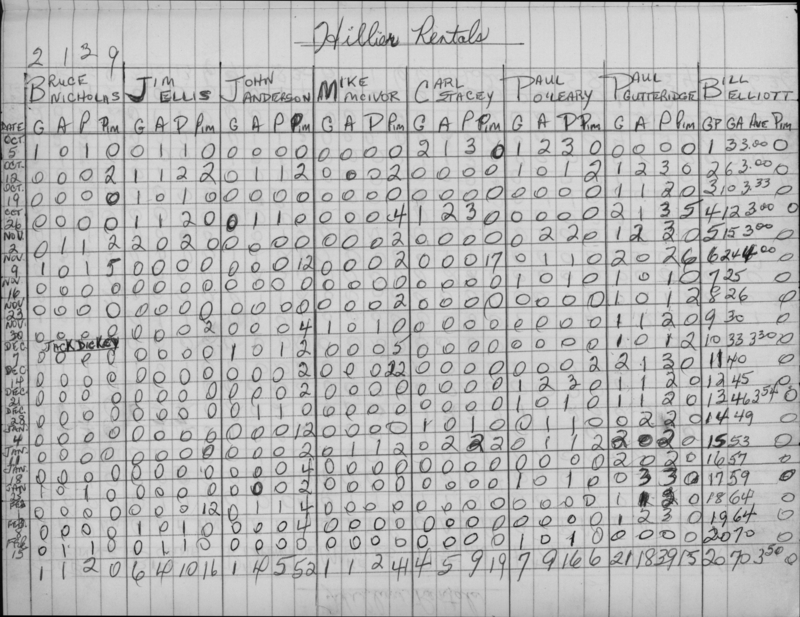 Hillier Rentals
2 1 3 9
BRUCE NICHOLAS JIM ELLIS JOHN ANDERSON MIKE MCIVOR CARL STACEY PAUL O'LEARY PAUL GUTTERIDGE BILL ELLIOTT
DATE G A P Pim G A P Pim G A P Pim G A P Pim G A P Pim G A P Pim G A P Pim GP GA AVE Pim
OCT. 5 1 0 1 0 0 1 1 0 0 0 0 0 0 0 0 0 2 1 3 0 1 2 3 0 0 0 0 0 1 3 3.00 0
OCT. 12 0 0 0 2 1 1 2 2 0 1 1 2 0 0 0 2 0 0 0 0 1 0 1 2 1 2 3 0 2 6 3.00 0
OCT. 19 0 0 0 0 1 0 1 0 0 0 0 0 0 0 0 0 0 0 0 0 0 0 0 0 1 1 2 0 3 10 3.33 0
OCT. 26 0 0 0 0 1 1 2 0 0 1 1 0 0 0 0 4 1 2 3 0 0 0 0 0 2 1 3 5 4 12 3.00 0
NOV. 2 0 1 1 2 2 0 2 0 0 0 0 0 0 0 0 2 0 0 0 0 0 2 2 0 1 2 3 0 5 15 3.00 0
NOV. 9 1 0 1 5 0 0 0 0 0 0 0 12 0 0 0 2 0 0 0 17 0 1 1 0 2 0 2 6 6 24 4.00 0
NOV. 16 0 0 0 0 0 0 0 0 0 0 0 0 0 0 0 0 0 0 0 0 1 0 1 0 1 0 1 0 7 25 0
NOV 23 0 0 0 0 0 0 0 0 0 0 0 0 0 0 0 2 0 0 0 0 0 0 0 0 1 0 1 2 8 26 0
NOV. 30 0 0 0 0 0 0 0 2 0 0 0 4 1 0 1 0 0 0 0 0 0 0 0 0 1 1 2 0 9 30 0
JACK DICKEY
DEC. 7 0 0 0 0 0 0 0 0 1 0 1 2 0 0 0 5 0 0 0 0 0 0 0 0 1 0 1 2 10 33 3.30 0
DEC 14 0 0 0 0 0 0 0 0 0 0 0 2 0 0 0 22 0 0 0 0 0 0 0 2 2 1 3 0 11 40 0
DEC 21 0 0 0 0 0 0 0 0 0 0 0 2 0 0 0 0 0 0 0 0 1 2 3 0 1 1 2 0 12 45 0
DEC. 28 0 0 0 0 0 0 0 0 0 1 1 0 0 0 0 0 0 0 0 0 1 0 1 0 1 1 2 0 13 46 3.54 0
JAN. 4 0 0 0 0 0 0 0 0 0 0 0 12 0 0 0 0 1 0 1 0 0 1 1 0 0 2 2 0 14 49 0
JAN. 11 0 0 0 0 0 0 0 0 0 0 0 2 0 1 1 2 0 2 2 2 0 1 1 2 2 0 2 0 15 53 0
JAN. 18 0 0 0 0 0 0 0 0 0 0 0 4 0 0 0 0 0 0 0 0 0 0 0 0 2 0 2 0 16 57 0
JAN 1 0 1 0 0 0 0 0 0 0 0 2 0 0 0 0 0 0 0 0 1 0 1 0 0 3 3 0 17 59 0
FEB. 0 0 0 0 0 0 0 12 0 1 1 4 0 0 0 0 0 0 0 0 0 0 0 0 1 1 2 0 18 64 0
FEB. 0 0 0 0 1 0 1 0 0 0 0 4 0 0 0 0 0 0 0 0 0 0 0 0 1 2 3 0 19 64 0
FEB 15 0 1 1 0 0 1 1 0 0 0 0 0 0 0 0 0 0 0 0 0 1 0 1 0 0 0 0 0 20 70 0
1 1 2 0 6 4 10 16 1 4 5 52 1 1 2 41 4 5 9 19 7 9 16 6 21 18 39 15 20 70 3.50 0